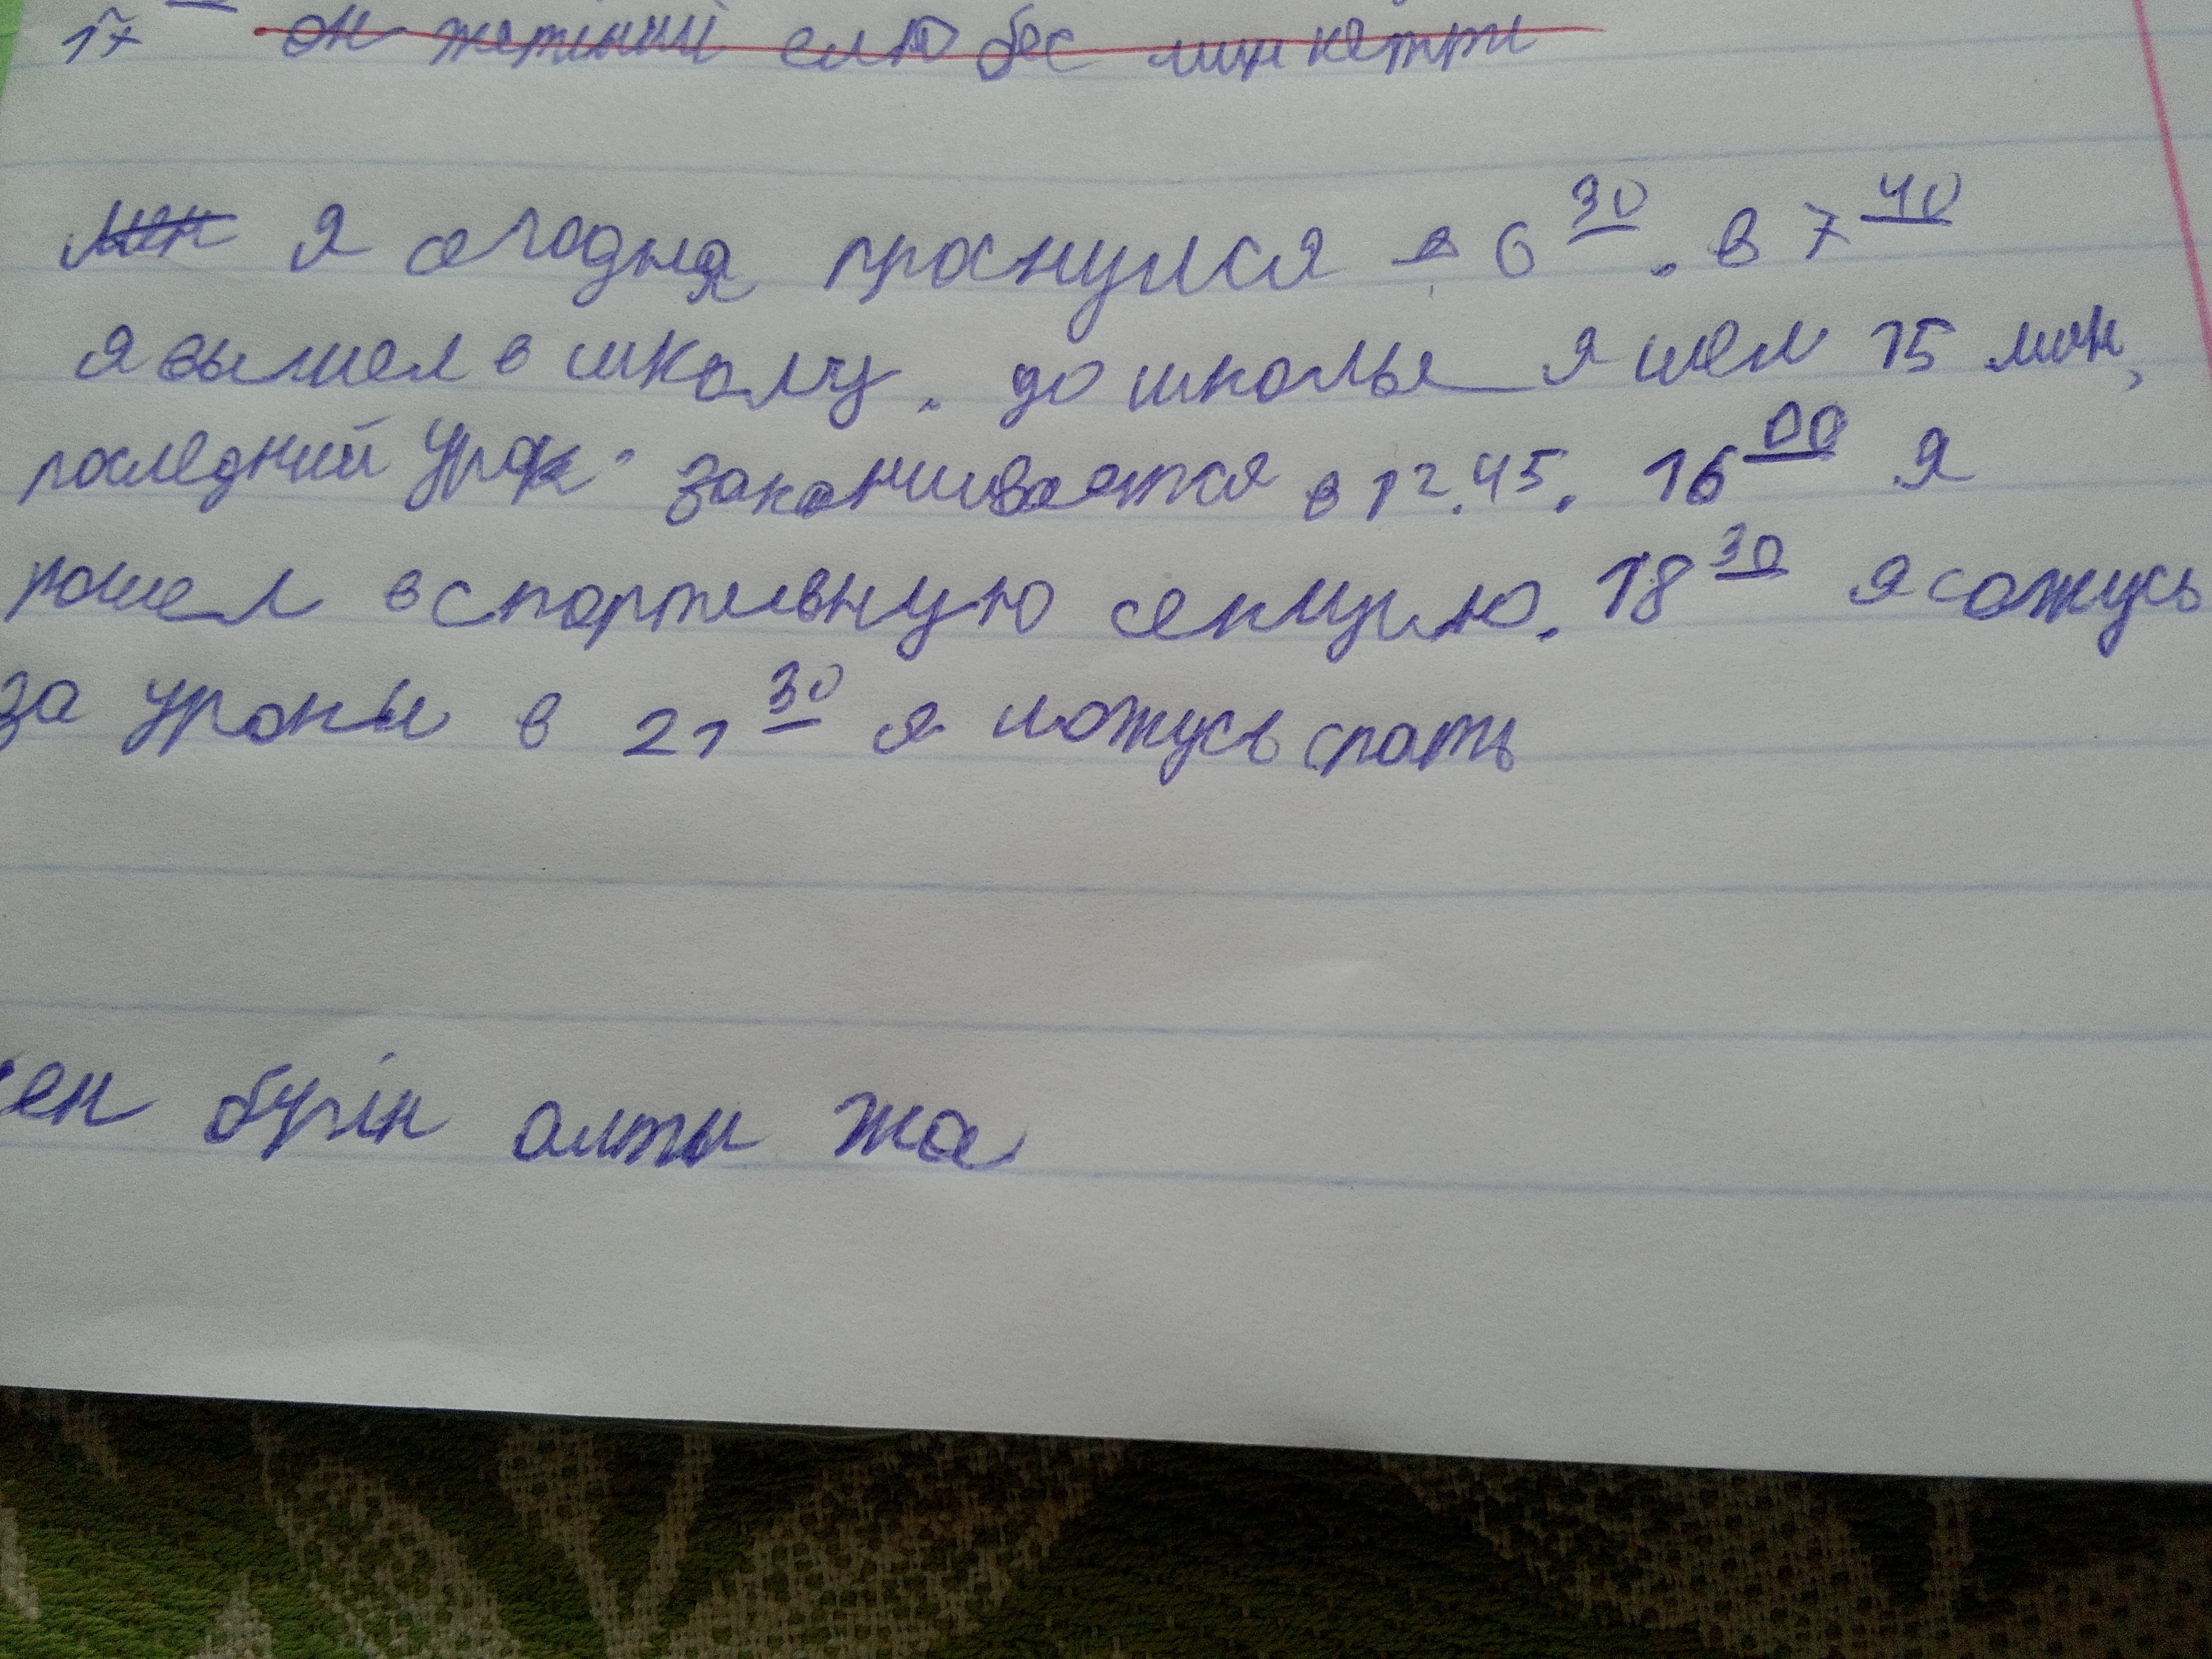 17 он жетінші елю бес минкетти
мен Я сегодня проснулся в 6 30. в 7 40
я вышел в школу. до школы я шел 15 мин,
последний урок заканчивается в 12.45. 16 00 я
пошел в спортивную секцию. 18 30 я сожусь
за уроки в 21 30 я ложусь спать
ен бүгін алты жа